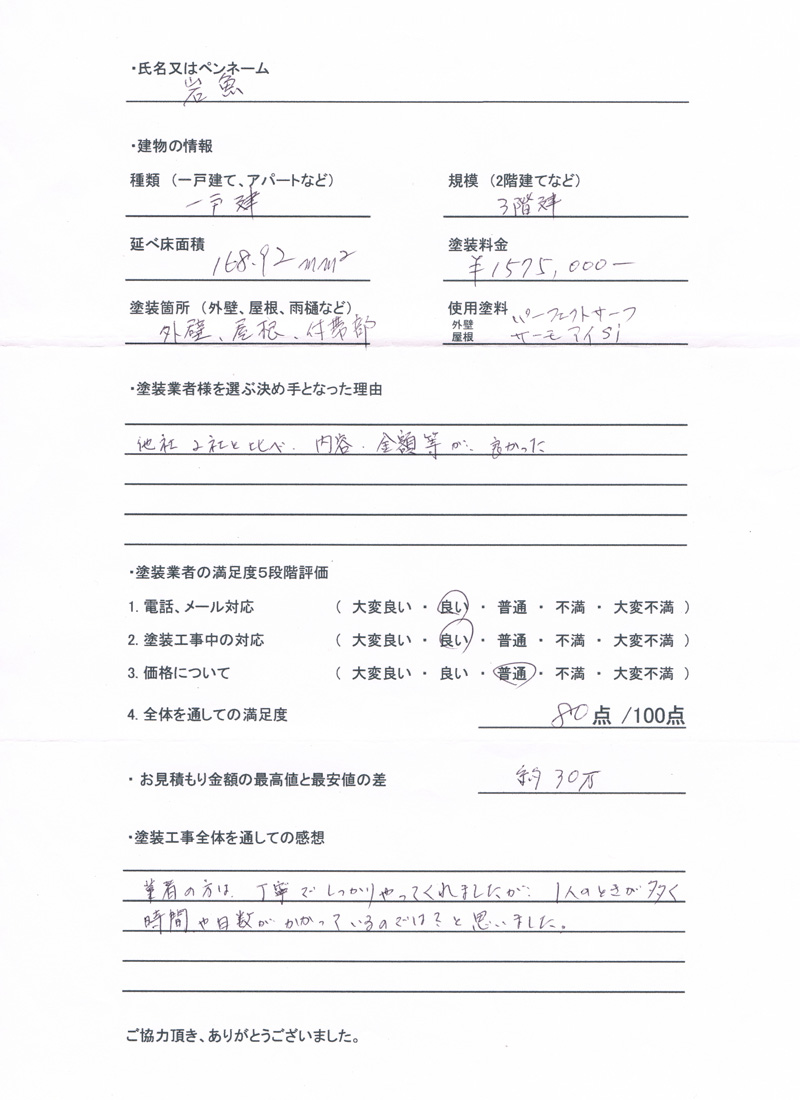 ・氏名又はペンネーム
岩魚
・建物の情報
種類（一戸建て、アパートなど）
一戸建
規模（2階建てなど）
3階建
延べ床面積
168.92mm²
塗装料金
¥1575,000ー
塗装箇所（外壁、屋根、雨樋など）
外壁、屋根、付帯部
使用塗料
外壁 パーフェクトサーフ
屋根 サーモアイSi
・塗装業者様を選ぶ決め手となった理由
他社2社と比べ、内容・金額等が、良かった
・塗装業者の満足度5段階評価
1. 電話、メール対応 （ 大変良い ・ 良い ・ 普通 ・ 不満 ・ 大変不満 ）
2. 塗装工事中の対応 （ 大変良い ・ 良い ・ 普通 ・ 不満 ・ 大変不満 ）
3. 価格について （ 大変良い ・ 良い ・ 普通 ・ 不満 ・ 大変不満 ）
4. 全体を通しての満足度 80点 /100点
・ お見積もり金額の最高値と最安値の差 約30万
・塗装工事全体を通しての感想
業者の方は、丁寧でしっかりやってくれましたが、1人のときが多く
時間や日数がかかっているのでは？と思いました。
ご協力頂き、ありがとうございました。